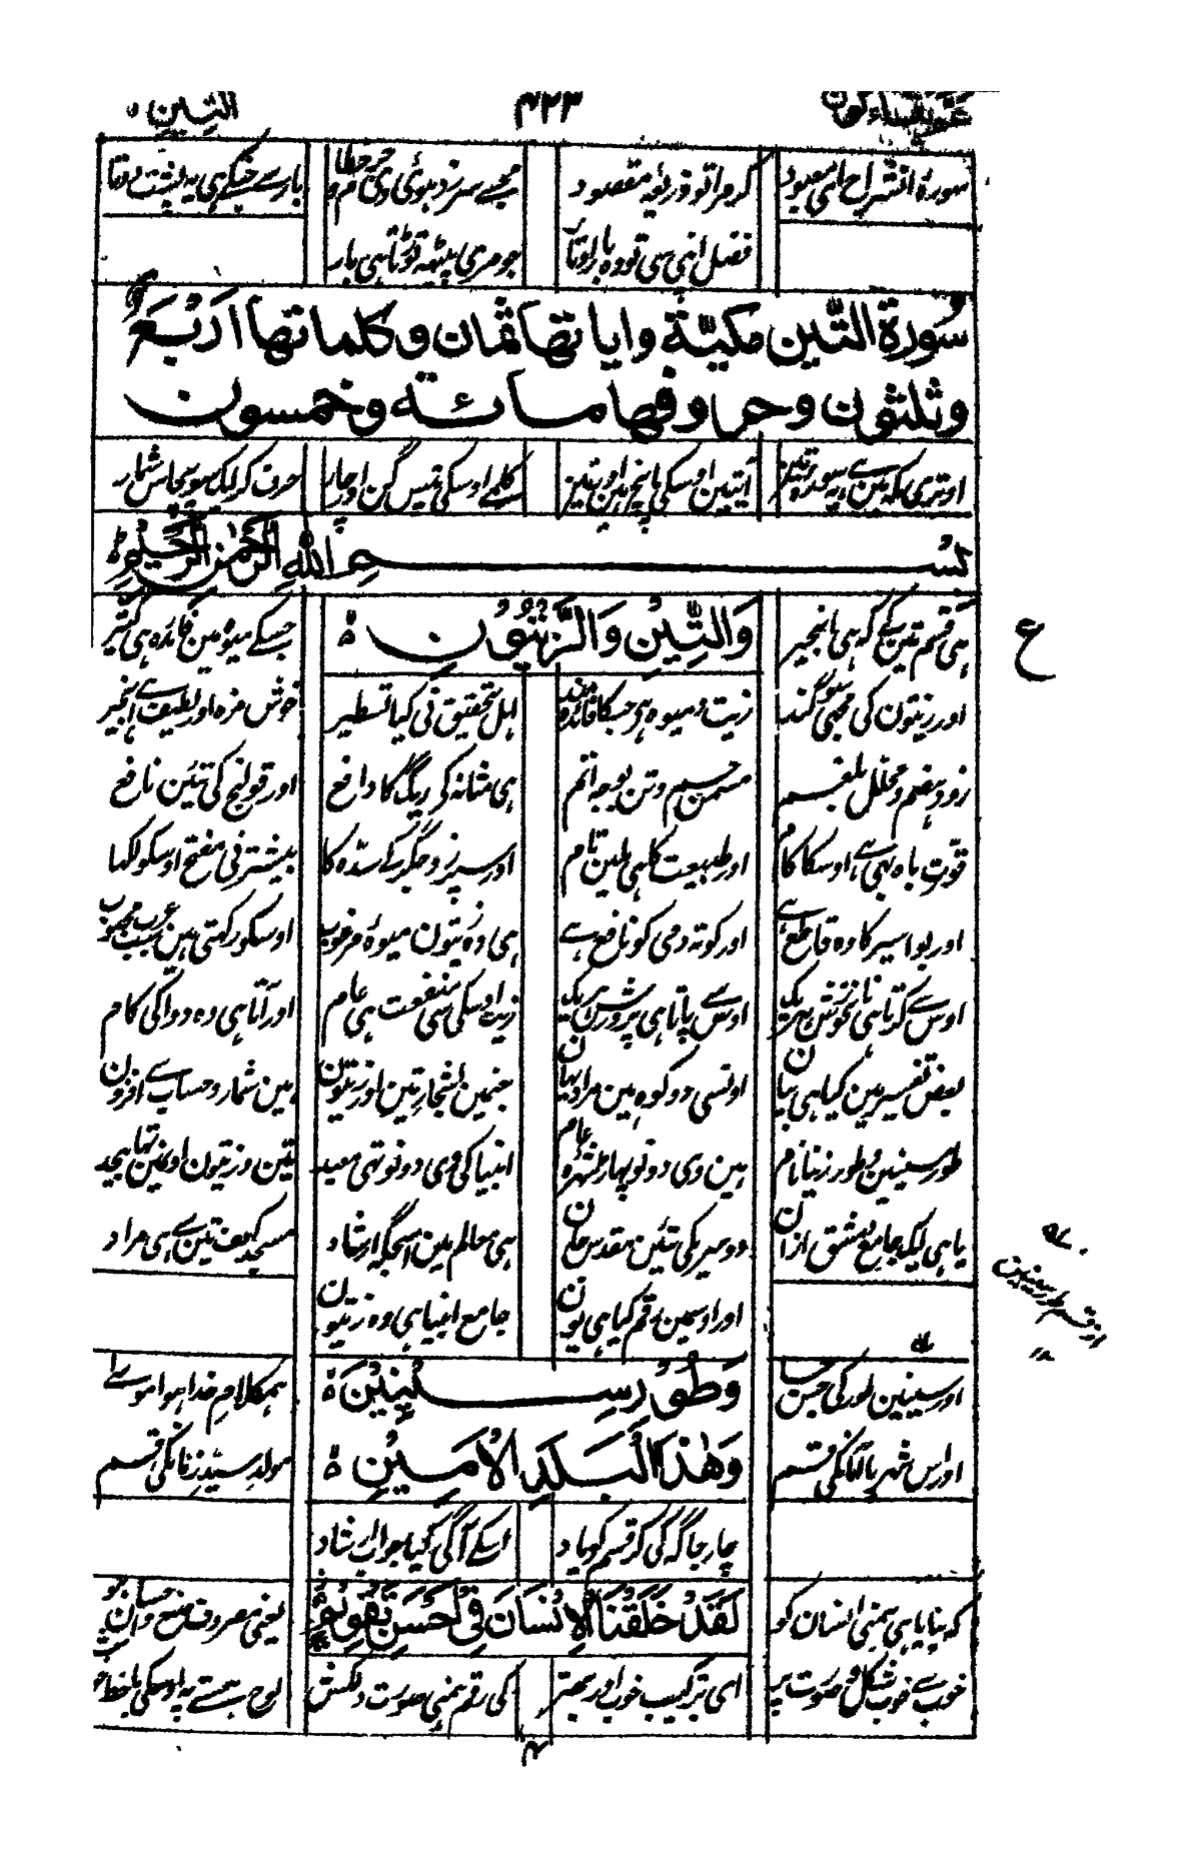 عم یتساءلون ۴۲۳ التین
سورۂ انشراح ای معبود کر مرا تو ذریعۂ مقصود مجھسے سرزد ہوئی وہی جرم و خطا بار سے جسکے ہی یہ پشت دوتا
فضل اپنی سی تو وہ بار اوتار جو مری پیٹھہ توڑتا ہی بار
سُوْرَةُ التِّین مکیّة وایاتها ثمان وکلماتها اربع
وثلثون وحروفها مائة وخمسون
اوتری مکہ مین ہے یہ سورۂ تین آیتین اوسکی پانچ اور تین کلمے اوسکی تیس گن اور چار حرف کر ایک سو پچاس شمار
بِسْمِ اللهِ الرَّحْمٰنِ الرَّحِيْمِ
ہی قسم تین کے کہ ہی انجیر وَالتِّيْنِ وَالزَّيْتُوْنِ ہ جسکے میوہ مین فائدہ ہی کثیر
اور زیتون کی مجھی سوگند زیت و میوہ ہی جسکا فائدہ مند اہل تحقیق نی کیا تسطیر خوش مزہ اور لطیف ہے انجیر
زود ہضم و محلل بلغم مسمن جسم و تن بوجہ اتم ہی مثانہ کے ریگ کا دافع اور قولنج کی تئین نافع
قوّت باہ بھی ہے اوسکا کام اور طبیعت کا ہی ملین تام اور سپرز و جگر کے سدّہ کا بیشتر فی مفتح اوسکو لکھا
اور بواسیر کا وہ قاطع ہے اور کوتہ دمی کو نافع ہے ہی وہ زیتون میوۂ مرغوب اوسکو رکھتی ہین سب عرب محبوب
اوس سے کرتا ہی نانخورش ہر یک اوس سے پاتا ہی پرورش ہر یک زیت اوسکی سی منفعت ہی عام اور آتا ہی وہ دوا کی کام
بعض تفسیر مین کیا ہی بیان اونسی دو کوہ ہین مراد یہان جنمین اشجار تین اور زیتون ہین شمار و حساب سے افزون
طور سینین و طور زیتا نام ہین وی دونو پہاڑ شہرۂ عام انبیا کی وی دونو تھی معبد تین و زیتون اونمین تھا بیحد
یا ہی ایک جامع دمشق ازان دوسریکی تئین مقدس جان ہی معالم مین اسجگہ ارشاد مسجد کہف تین سے ہی مراد
اور اوسمین رقم کیا ہی یون جامع انبیا ہی وہ زیتون
اور سینین طور کی وَطُوْرِ سِيْنِيْنَ ہ ہمکلام خدا ہوا موسے
اور اس شہر با امانکی قسم وَهٰذَا الْبَلَدِ الْاَمِيْنِ ہ مولد سیّد زمانکی قسم
چار جاگہ کی کر قسم کو یاد اسکے آگی کیا جواب ارشاد
کہ بنایا ہی ہمنی انسان کو لَقَدْ خَلَقْنَا الْاِنْسَانَ فِيْ اَحْسَنِ تَقْوِيْمٍ
خوب سے خوب شکل و صورت پر اسی ترکیب خوب اور بہتر کی رقم ہمنی صورت دلکش
ع